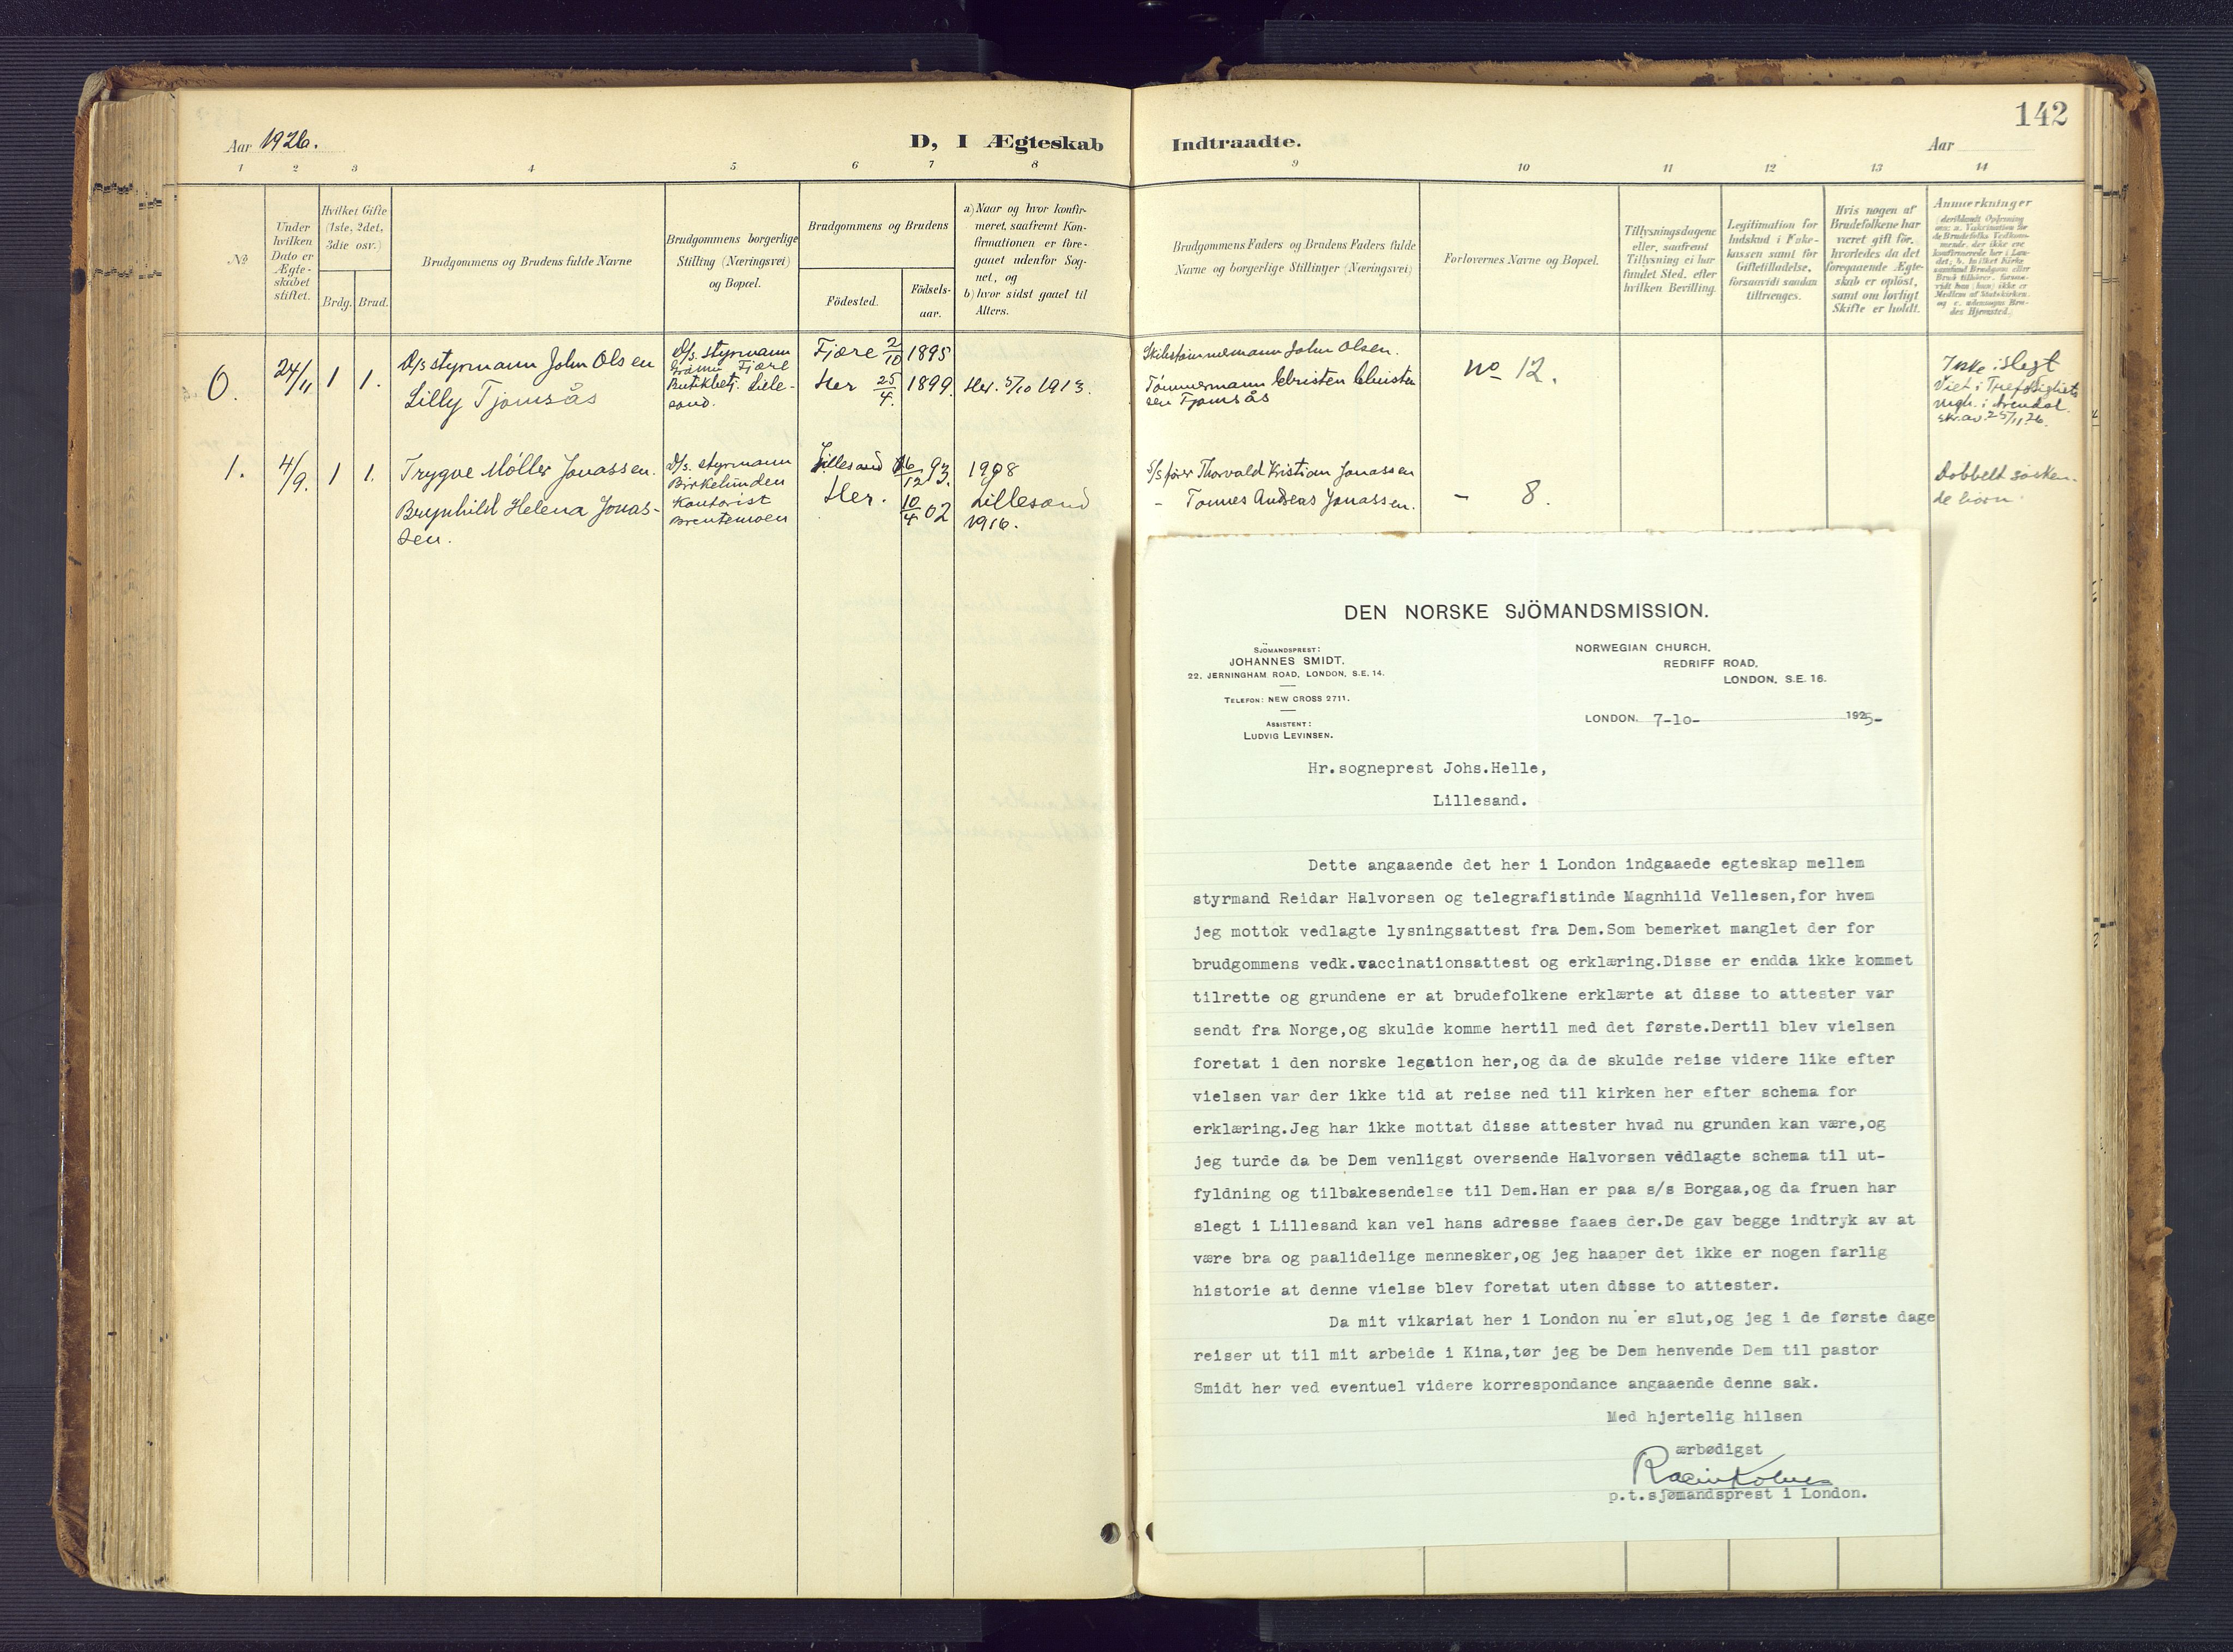 142
Aar 1926.
D, I Ægteskab
Indtraadte.
Aar
1 2 3 4 5 6 7 8 9 10 11 12 13 14
№
Under
hvilken
Dato er
Ægte-
skabet
stiftet.
Hvilket Gifte
(1ste, 2det,
3die osv.)
Brdg. Brud.
Brudgommens og Brudens fulde Navne
Brudgommens borgerlige
Stilling (Næringsvei)
og Bopæl.
Brudgommens og Brudens
Födested.
Födsels-
aar.
a) Naar og hvor konfir-
meret, saafremt Kon-
firmationen er fore-
gaaet udenfor Sog-
net, og
b) hvor sidst gaaet til
Alters.
Brudgommens Faders og Brudens Faders fulde
Navne og borgerlige Stillinger (Næringsvei)
Forlovernes Navne og Bopæl.
Tillysningsdagene
eller, saafremt
Tillysning ei har
fundet Sted, efter
hvilken Bevilling.
Legitimation for
Indskud i Enke-
kassen samt for
Giftetilladelse,
forsaavidt saadan
tiltrænges.
Hvis nogen af
Brudefolkene har
været gift för,
hvorledes da det
foregaaende Ægte-
skab er oplöst,
samt om lovligt
Skifte er holdt.
Anmærkninger
O. 24/11 1 1. D/s styrmann John Olsen
Lilly Tjomsås
D/s. styrmann
Fjære
Butikbetj. Lille-
sand.
Fjære 2/10 1895
Her 25/4. 1899. Her. 5/10 1913.
Skibstømmermann John Olsen.
Tømmermann Christen Christen
sen Tjomsås
no 12.
Ikke i slegt
Viet i Trefoldighets
mgh. i Arendal.
skr. av. 25/11.26.
1. 4/9. 1 1. Trygve Møller Jonassen.
Brynhild Helena Jonas-
sen.
D/s. styrmann
Birkelunden
Kontorist
Brentemoen
Lillesand 16/12 93.
Her. 10/4 02
1908
Lillesand
1916.
S/s fører Thorvald Kristian Jonassen
- Tønnes Andreas Jonassen.
- 8.
Dobbelt søsken-
de barn.
DEN NORSKE SJÖMANDSMISSION.
SJÖMANDSPREST:
JOHANNES SMIDT,
22, JERNINGHAM ROAD, LONDON, S.E. 14.
TELEFON: NEW CROSS 2711.
ASSISTENT:
LUDVIG LEVINSEN.
NORWEGIAN CHURCH,
REDRIFF ROAD,
LONDON, S.E. 16.
LONDON, 7-10- 1925-
Hr.sogneprest Johs.Helle,
Lillesand.
Dette angaaende det her i London indgaaede egteskap mellem
styrmand Reidar Halvorsen og telegrafistinde Magnhild Vellesen,for hvem
jeg mottok vedlagte lysningsattest fra Dem.Som bemerket manglet der for
brudgommens vedk.vaccinationsattest og erklæring.Disse er endda ikke kommet
tilrette og grundene er at brudefolkene erklærte at disse to attester var
sendt fra Norge,og skulde komme hertil med det første.Dertil blev vielsen
foretat i den norske legation her,og da de skulde reise videre like efter
vielsen var der ikke tid at reise ned til kirken her efter schema for
erklæring.Jeg har ikke mottat disse attester hvad nu grunden kan være,og
jeg turde da be Dem venligst oversende Halvorsen vedlagte schema til ut-
fyldning og tilbakesendelse til Dem.Han er paa s/s Borgaa,og da fruen har
slegt i Lillesand kan vel hans adresse faaes der.De gav begge indtryk av at
være bra og paalidelige mennesker,og jeg haaper det ikke er nogen farlig
historie at denne vielse blev foretat uten disse to attester.
Da mit vikariat her i London nu er slut,og jeg i de første dage
reiser ut til mit arbeide i Kina,tør jeg be Dem henvende Dem til pastor
Smidt her ved eventuel videre korrespondance angaaende denne sak.
Med hjertelig hilsen
ærbødigst
p.t.sjømandsprest i London.